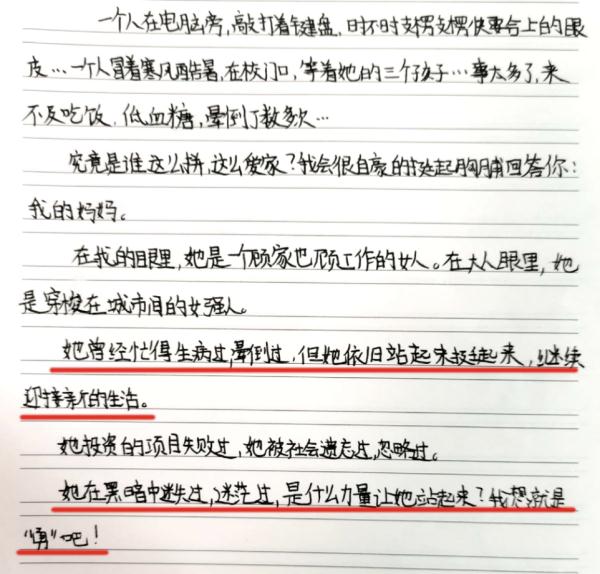 一个人在电脑旁,敲打着键盘,时不时支楞支楞快要合上的眼
皮…一个人冒着寒风酷暑,在校门口,等着她的三个孩子…事太多了,来
不及吃饭,低血糖,晕倒了数多次…
究竟是谁这么拼,这么爱家?我会很自豪的挺起胸脯回答你:
我的妈妈。
在我的眼里,她是一个顾家也顾工作的女人。在大人眼里,她
是穿梭在城市间的女强人。
她曾经忙得生病过,晕倒过,但她依旧站起来挺起来,继续
迎接新的生活。
她投资的项目失败过,她被社会遗忘过,忽略过。
她在黑暗中迷失过,迷茫过,是什么力量让她站起来?我想就是
“勇”吧!